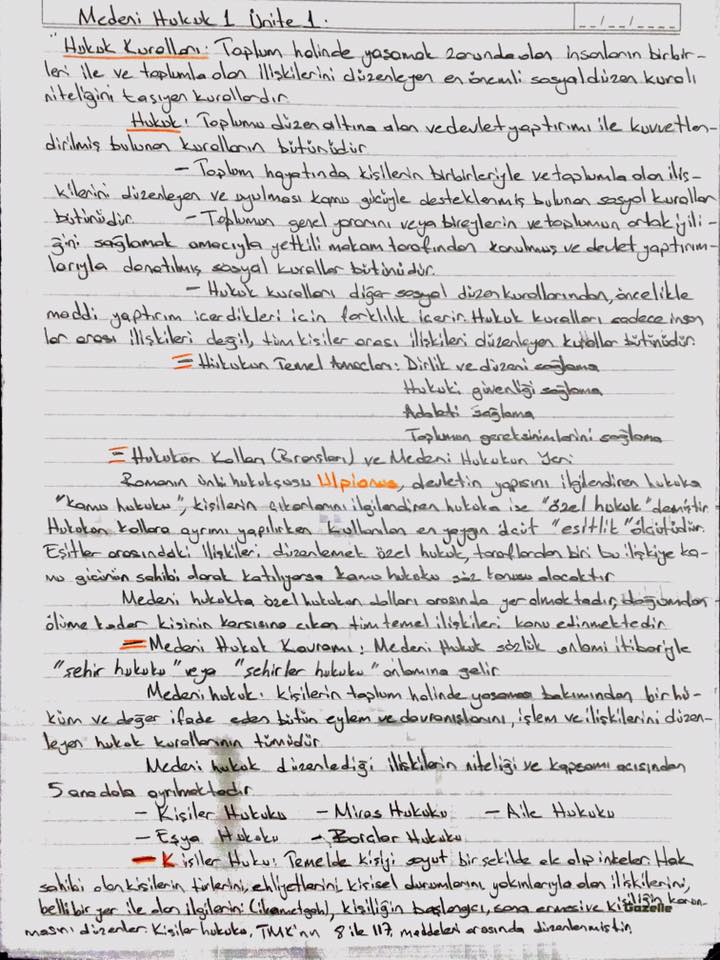 Medeni Hukuk 1 Ünite 1.
__/__/__
"Hukuk Kuralları: Toplum halinde yaşamak zorunda olan insanların birbir-
leri ile ve toplumla olan ilişkilerini düzenleyen en önemli sosyal düzen kuralı
niteliğini taşıyan kurallardır.
Hukuk: Toplumu düzen altına alan ve devlet yaptırımı ile kuvvetlen-
dirilmiş bulunan kuralların bütünüdür
- Toplum hayatında kişilerin birbirleriyle ve toplumla olan iliş-
kilerini düzenleyen ve uyulması kamu gücüyle desteklenmiş bulunan sosyal kurallar
bütünüdür - Toplumun genel yararını veya bireylerin ve toplumun ortak iyili-
ğini sağlamak amacıyla yetkili makam tarafından konulmuş ve devlet yaptırım-
larıyla donatılmış sosyal kurallar bütünüdür.
- Hukuk kuralları diğer sosyal düzen kurallarından, öncelikle
maddi yaptırım içerdikleri için farklılık içerir. Hukuk kuralları sadece insan
lar arası ilişkileri değil, tüm kişiler arası ilişkileri düzenleyen kurallar bütünüdür.
= Hukukun Temel Amaçları: Dirlik ve düzeni sağlama
Hukuki güvenliği sağlama
Adaleti sağlama
Toplumun gereksinimlerini sağlama
= Hukukun Kolları (Branşları) ve Medeni Hukukun Yeri
Romanın ünlü hukukçusu Ulpianus, devletin yapısını ilgilendiren hukuka
"kamu hukuku", kişilerin çıkarlarını ilgilendiren hukuka ise "özel hukuk" demiştir
Hukukun kollara ayrımı yapılırken kullanılan en yaygın ölçüt "eşitlik" ölçütüdür.
Eşitler arasındaki ilişkileri düzenlemek özel hukuk, taraflardan biri bu ilişkiye ka-
mu gücünün sahibi olarak katılıyorsa kamu hukuku söz konusu olacaktır
Medeni hukukta özel hukukun dalları arasında yer almaktadır, doğumdan
ölüme kadar kişinin karşısına çıkan tüm temel ilişkileri konu edinmektedir
= Medeni Hukuk Kavramı: Medeni Hukuk sözlük anlamı itibariyle
"şehir hukuku" veya "şehirler hukuku" anlamına gelir
Medeni hukuk: Kişilerin toplum halinde yaşaması bakımından bir hü-
küm ve değer ifade eden bütün eylem ve davranışlarını, işlem ve ilişkilerini düzen-
leyen hukuk kurallarının tümüdür
Medeni hukuk düzenlediği ilişkilerin niteliği ve kapsamı açısından
5 ana dala ayrılmaktadır
- Kişiler Hukuku - Miras Hukuku - Aile Hukuku
- Eşya Hukuku - Borçlar Hukuku
- Kişiler Huku: Temelde kişiyi soyut bir şekilde ele alıp inceler. Hak
sahibi olan kişilerin türlerini, ehliyetlerini, kişisel durumlarını yakınlarıyla olan ilişkilerini,
belli bir yer ile olan ilgilerini (ikametgah), kişiliğin başlangıcı, sona ermesi ve kişiliğin korun-
masını düzenler. Kişiler hukuku, TMK'nın 8 ile 117. maddeleri arasında düzenlenmiştir.
Gazelle